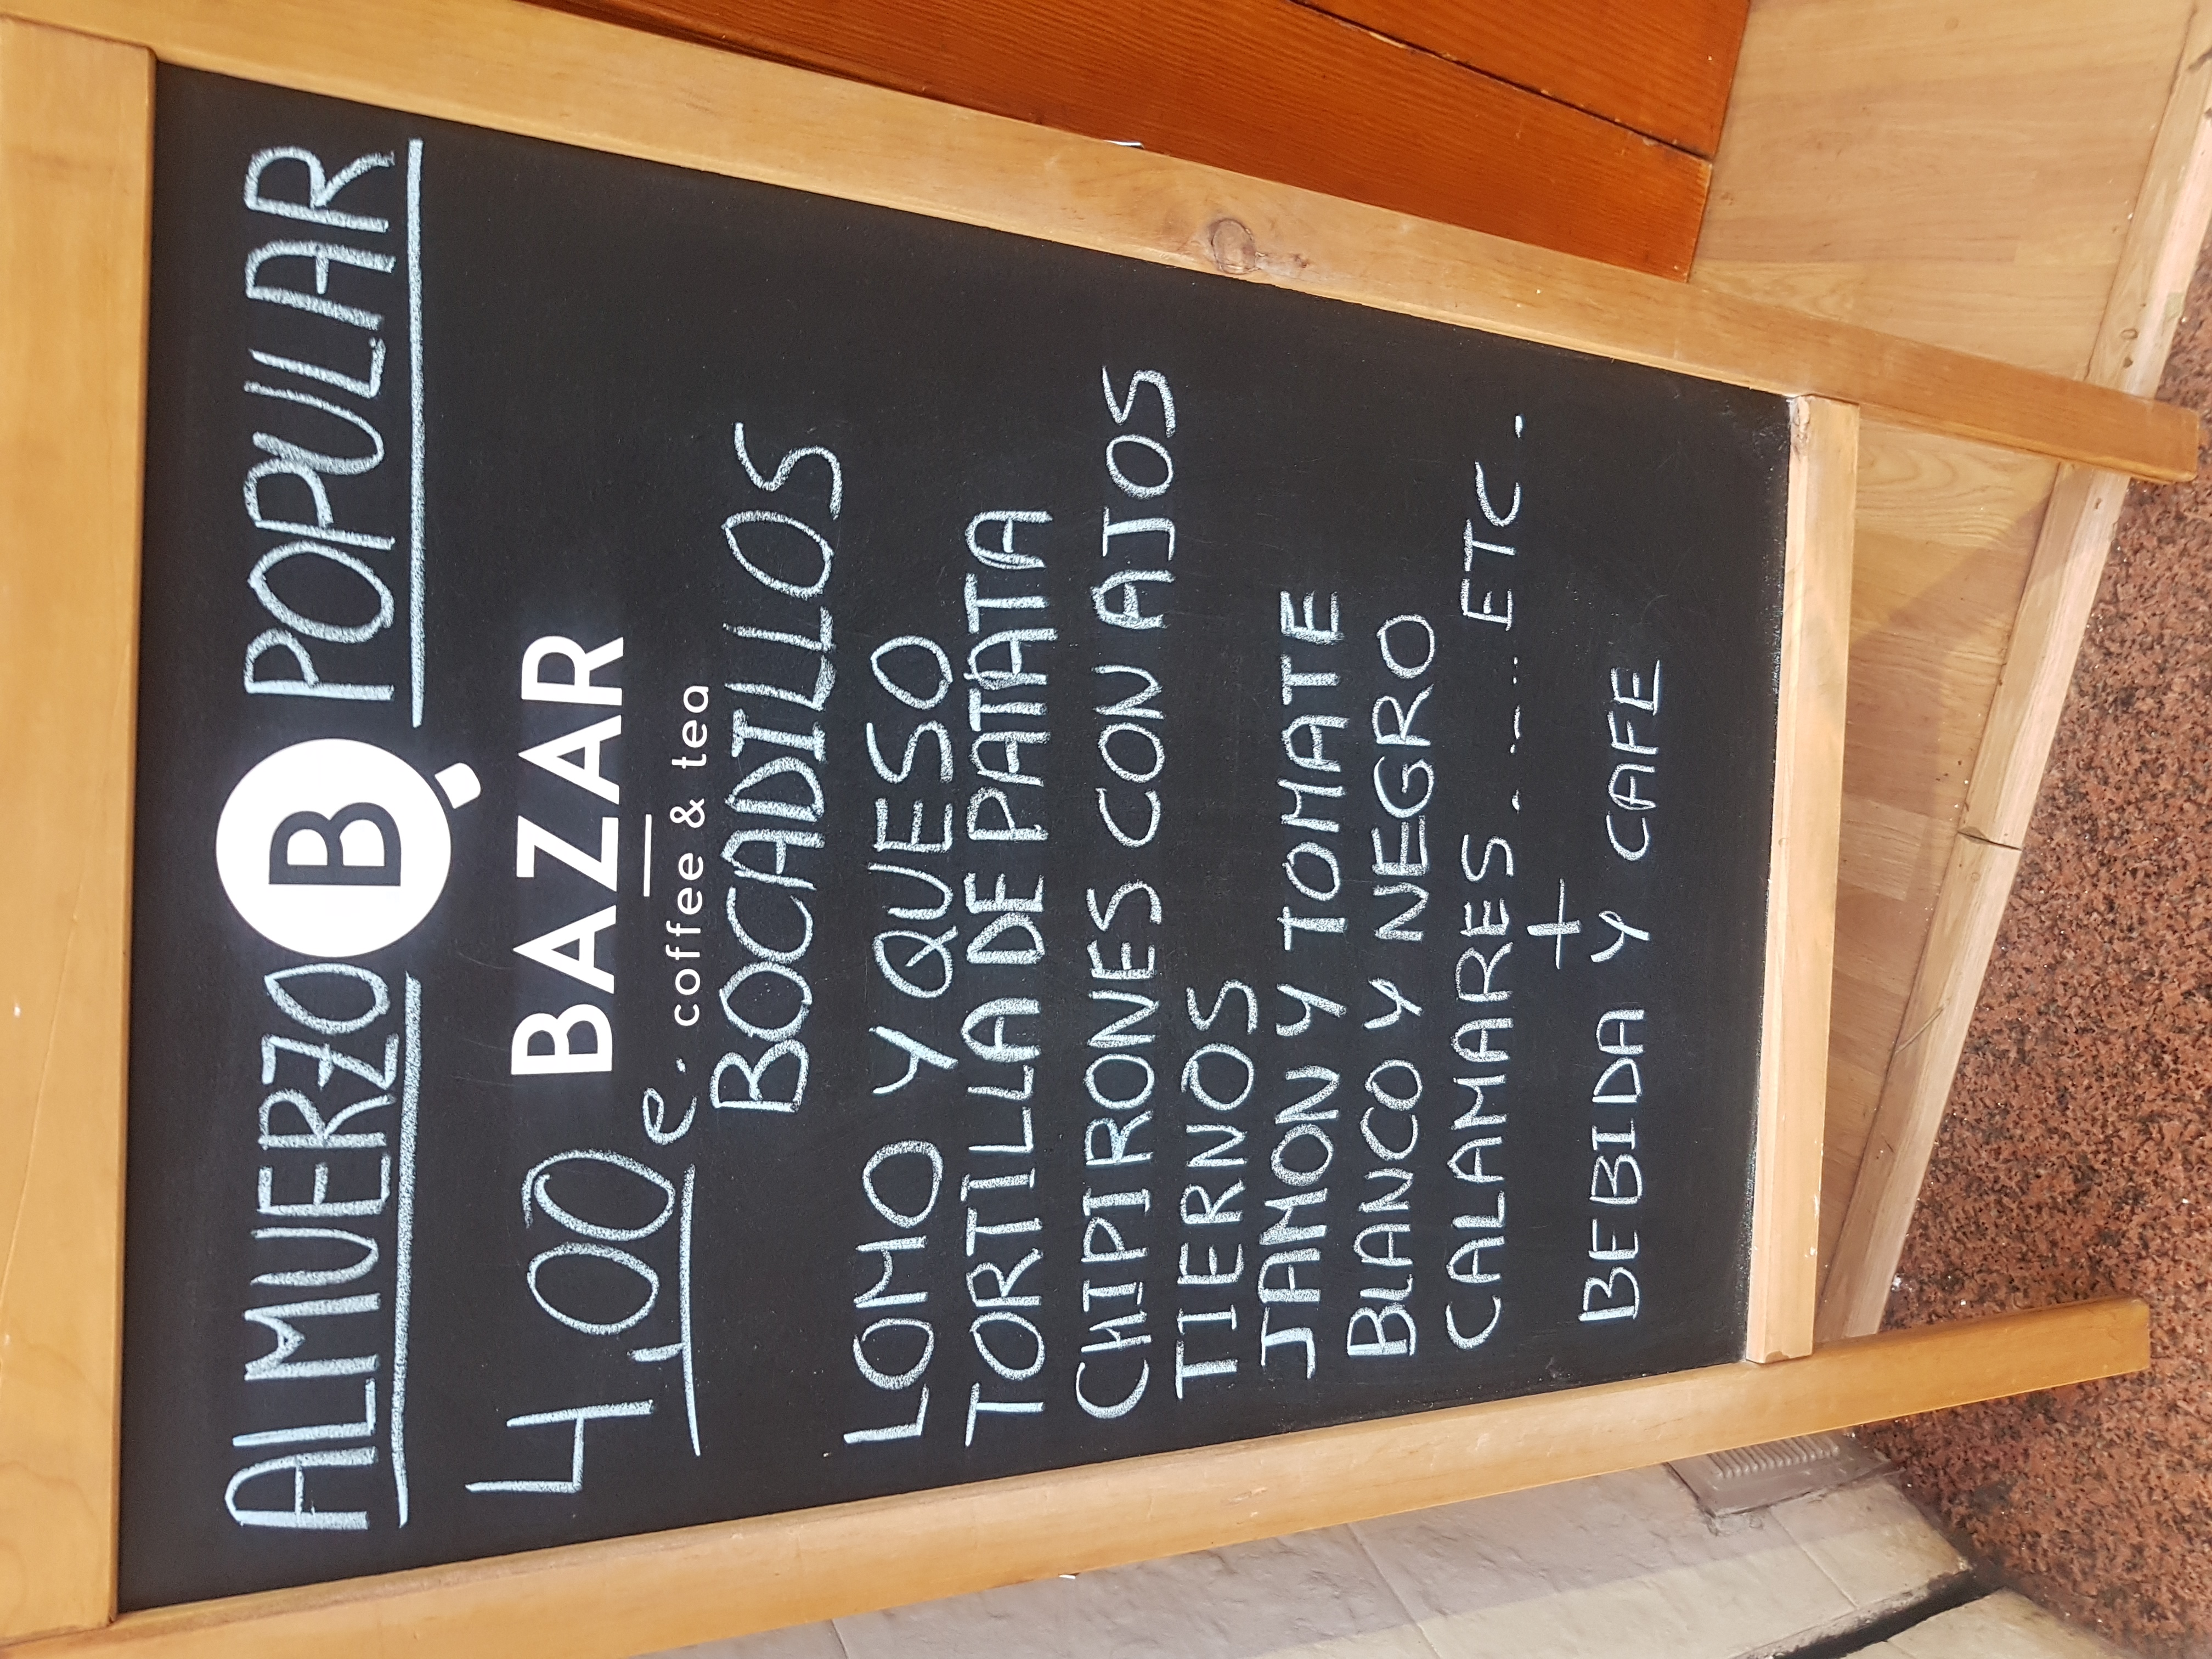 ALMUERZO B POPULAR
BAZAR
4,00 e. coffee & tea
BOCADILLOS
LOMO Y QUESO
TORTILLA DE PATATA
CHIPIRONES CON AJOS
TIERNOS
JAMON Y TOMATE
BLANCO Y NEGRO
CALAMARES........ ETC.
+
BEBIDA Y CAFE